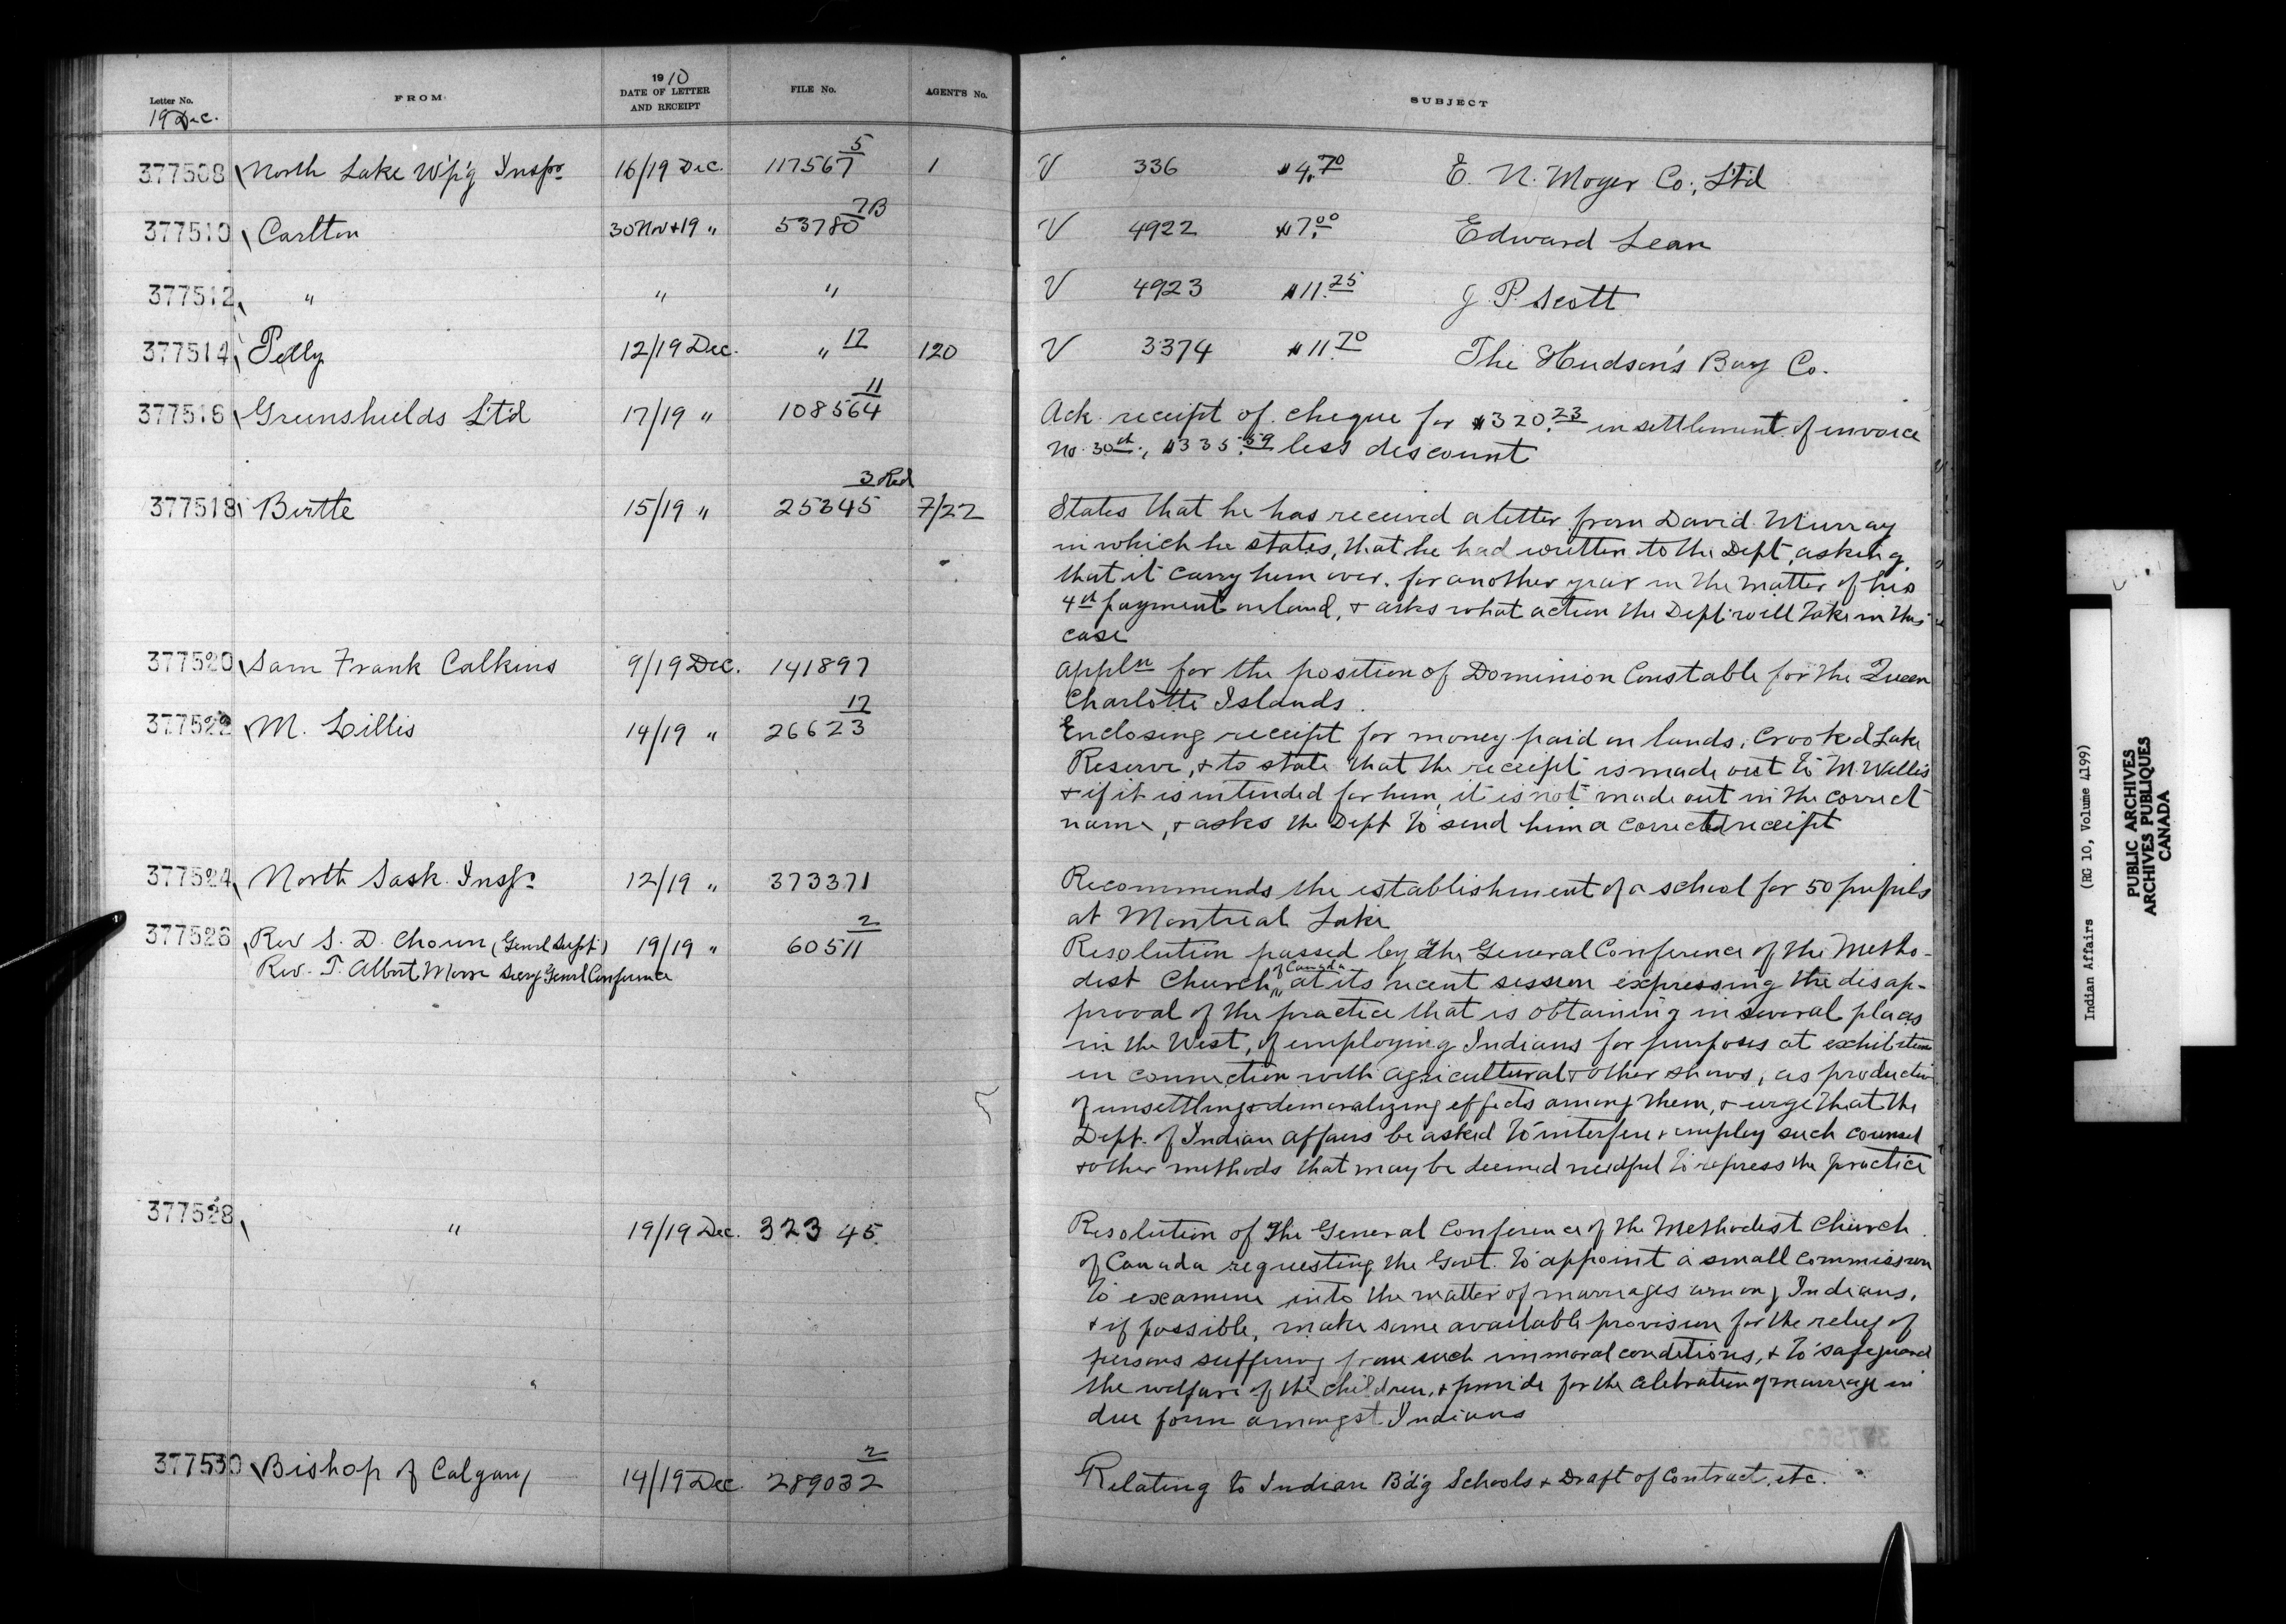 Letter No. FROM 1910 DATE OF LETTER AND RECEIPT FILE No. AGENT'S No. SUBJECT
19 Dec.
377508 North Lake W'p'g Inspr 16/19 Dec. 117567 5 1 V 336 $4.70 E. N. Moyer Co., Ltd
377510 Carlton 30 Nov & 19 " 53780 7B V 4922 $7.00 Edward Lean
377512 " " " V 4923 $11.25 J. P. Scott
377514 Pelly 12/19 Dec. " 12 120 V 3374 $11.70 The Hudson's Bay Co.
377516 Greenshields Ltd 17/19 " 108564 11 Ack. receipt of cheque for $320.23 in settlement of invoice
No. 30th, $335.59 less discount
377518 Birtle 15/19 " 25345 3 Red 7/22 States that he has received a letter from David Murray
in which he states, that he had written to the Dept, asking
that it carry him over, for another year in the matter of his
4th payment on land, & asks what action the Dept will take in this
case
377520 Sam Frank Calkins 9/19 Dec. 141897 Appln for the position of Dominion Constable for the Queen
Charlotte Islands.
377522 M. Lillis 14/19 " 26623 12 Enclosing receipt for money paid on lands, Crooked Lake
Reserve, & to state that the receipt is made out to M. Willis
& if it is intended for him, it is not made out in the correct
name, & asks the Dept to send him a corrected receipt
377524 North Sask. Inspr 12/19 " 373371 Recommends the establishment of a school for 50 pupils
at Montreal Lake
377526 Rev S. D. Chown (Genrl Supt.) 19/19 " 60511 2 Resolution passed by the General Conference of the Metho-
Rev. T. Albert Moore Secry Genrl Conference
dist Church of Canada at its recent session expressing the disap-
proval of the practice that is obtaining in several places
in the West, of employing Indians for purposes at exhibition
in connection with agricultural & other shows, as productiv
of unsettling & demoralizing effects among them, & urge that the
Dept. of Indian Affairs be asked to interfere & employ such counsel
& other methods that may be deemed needful to repress the practice
377528 " 19/19 Dec. 32345 Resolution of the General Conference of the Methodist Church
of Canada requesting the Govt. to appoint a small commission
to examine into the matter of marriages among Indians,
& if possible, make some available provision for the relief of
persons suffering from such immoral conditions, & to safeguard
the welfare of the children, & provide for the celebration of marriage in
due form amongst Indians
377530 Bishop of Calgary 14/19 Dec. 289032 2 Relating to Indian B'd'g Schools & Draft of Contract, etc.
Indian Affairs (RG 10, Volume 4199)
PUBLIC ARCHIVES
ARCHIVES PUBLIQUES
CANADA